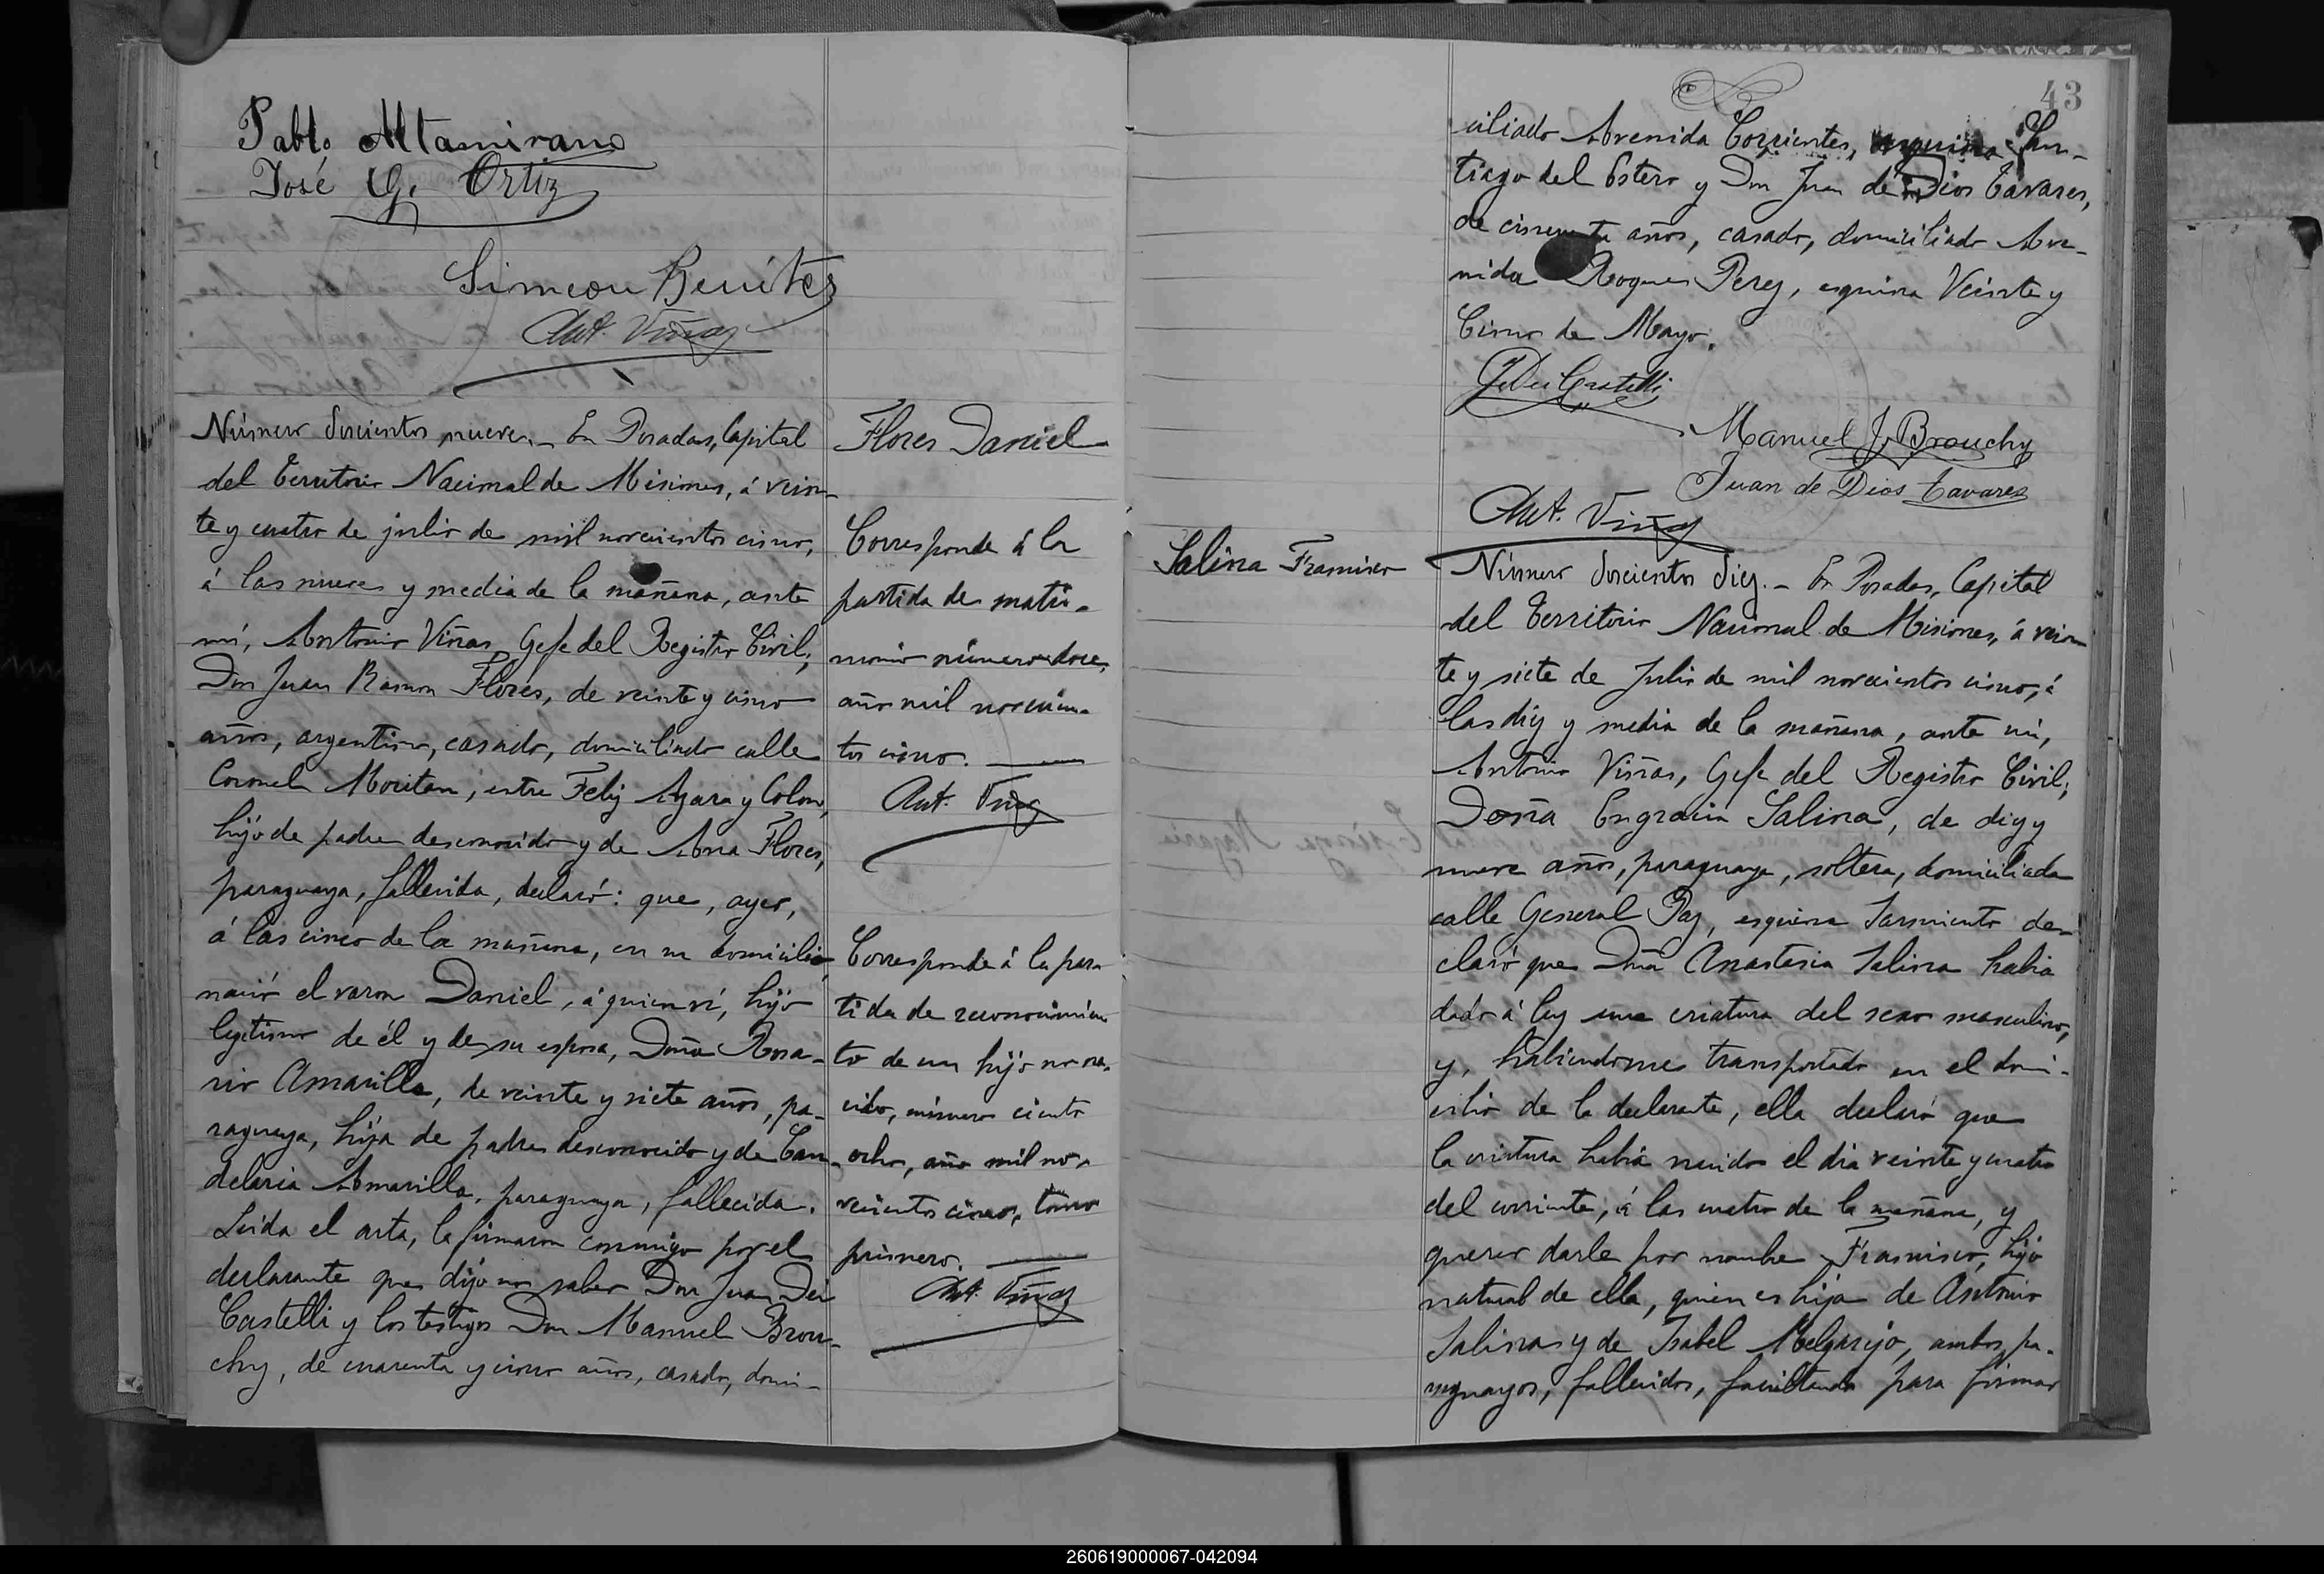 Pablo Altamirano
José G. Ortiz
Simeon Benites
Ant. Viñas
Número doscientos nueve. _ En Posadas, Capital
del Territorio Nacional de Misiones, á vein-
te y cuatro de julio de mil novecientos cinco,
á las nueve y media de la mañana, ante
mí, Antonio Viñas, Gefe del Registro Civil;
Don Juan Ramon Flores, de veinte y cinco
años, argentino, casado, domiciliado calle
Coronel Moritan, entre Feliz Azara y Colon,
hijo de padre desconocido y de Ana Flores,
paraguaya, fallecida, declaró: que, ayer,
á las cinco de la mañana, en su domicilio,
nació el varon Daniel, á quien ví, hijo
legitimo de él y de su esposa, Doña Rosa-
rio Amarilla, de veinte y siete años, pa-
raguaya, hija de padre desconocido y de Can-
delaria Amarilla, paraguaya, fallecida.
Leida el acta, la firmaron conmigo por el
declarante que dijo no saber Don Juan Dei
Castelli y los testigos Don Manuel Brou-
chy, de cuarenta y cinco años, casado, domi-
Flores Daniel
Corresponde á la
partida de matri-
monio número doce,
año mil novecien-
tos cinco. _
Ant. Viñas
Corresponde á la par-
tida de reconocimien-
to de un hijo no na-
cido, número ciento
ocho, año mil no-
vecientos cinco, tomo
primero. _
Ant. Viñas
43
ciliado Avenida Corrientes, esquina San-
tiago del Estero y Don Juan de Dios Tavares,
de cincuenta años, casado, domiciliado Ave-
nida Roque Perez, esquina Veinte y
Cinco de Mayo.
J. Dei Castelli
Manuel J. Brouchy
Juan de Dios Tavares
Ant. Viñas
Salina Francisco
Número doscientos diez. _ En Posadas, Capital
del Territorio Nacional de Misiones, á vein-
te y siete de Julio de mil novecientos cinco, á
las diez y media de la mañana, ante mí,
Antonio Viñas, Gefe del Registro Civil;
Doña Engracia Salina, de diez y
nueve años, paraguaya, soltera, domiciliada
calle General Paz, esquina Sarmiento de-
claró que Doña Anastasia Salina habia
dado á luz una criatura del sexo masculino,
y, habiendome transportado en el domi-
cilio de la declarante, ella declaró que
la criatura habia nacido el dia veinte y cuatro
del corriente, á las cuatro de la mañana, y
querer darle por nombre Francisco, hijo
natural de ella, quien es hija de Antonio
Salinas y de Isabel Melgarejo, ambos pa-
raguayos, fallecidos, facultando para firmar
260619000067-042094